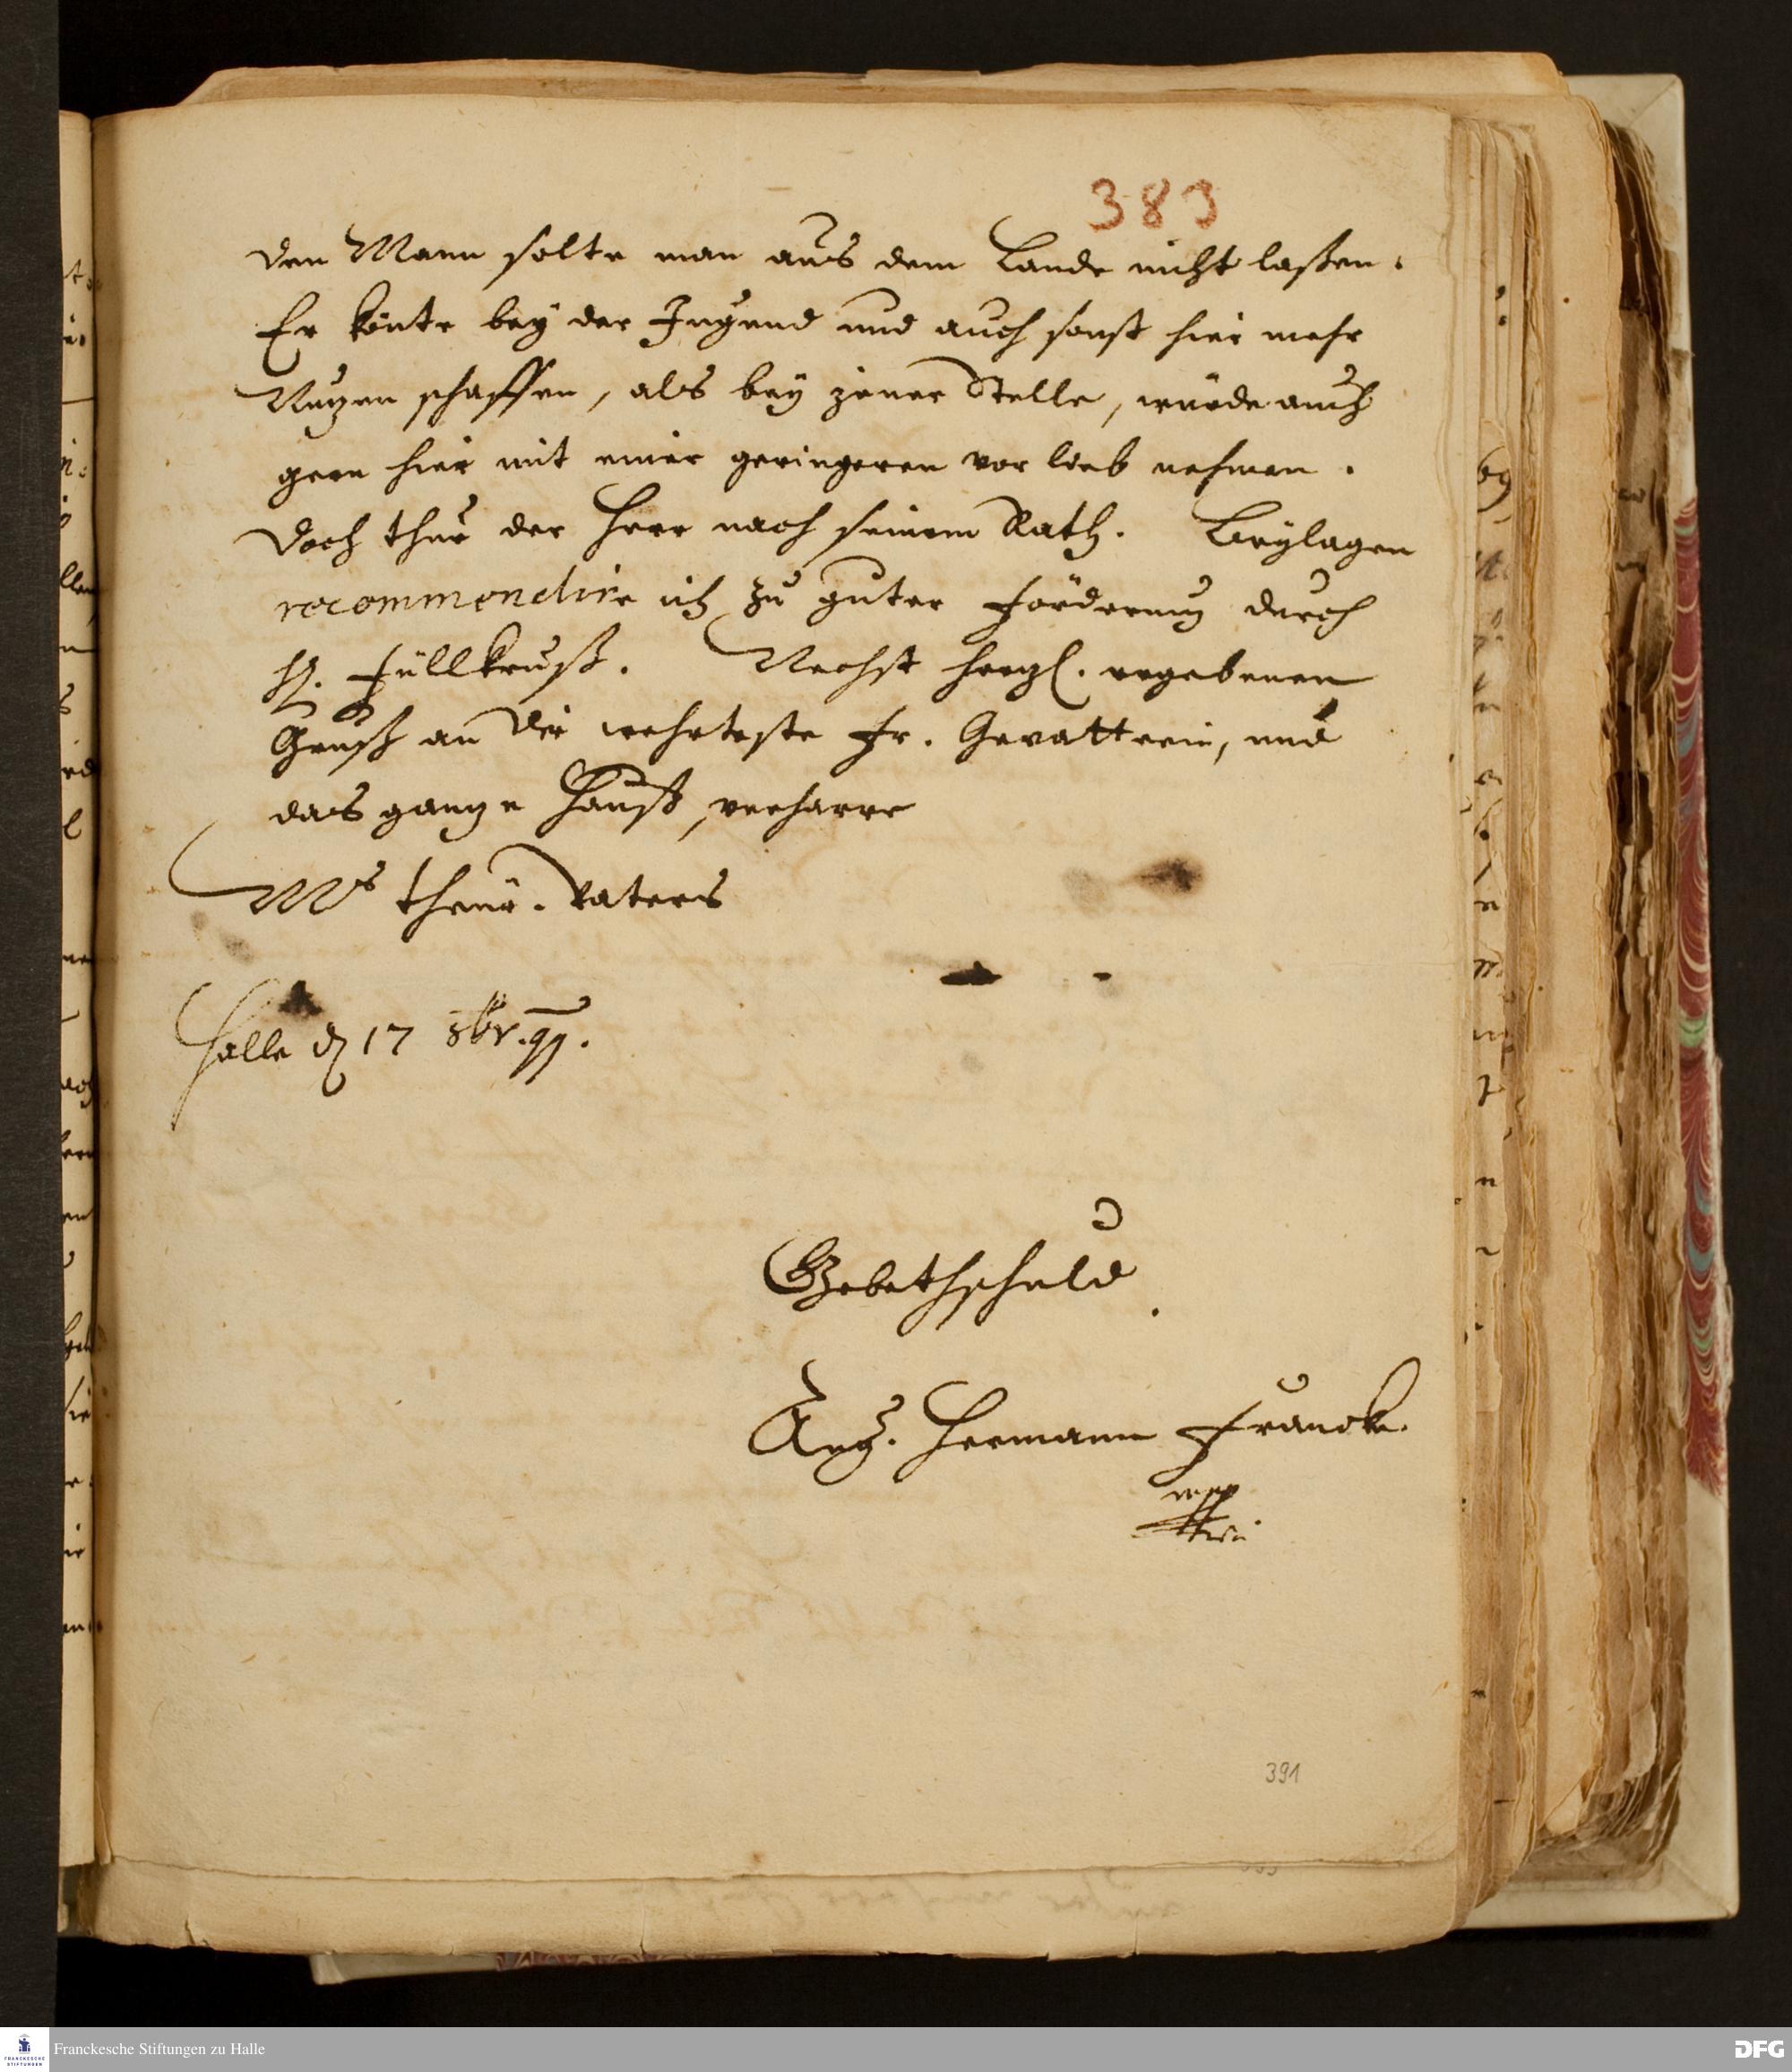 383
den Mann solte man aus dem Lande nicht laßen.
Er könte bey der Jugend und auch sonst hier mehr
Nutzen schaffen, als bey jener Stelle, würde auch
gern hier mit einer geringeren vor lieb nehmen.
Doch thue der Herr nach seinem Rath. Beylagen
recommendire ich zu guter Förderung durch
H. Füllkruß. Nechst hertzl. ergebenen
Gruß an die wehrteste Fr. Gevatterin, und
das gantze Hauß, verharre
Ms theur. Vaters
Halle d 17 8br. 99.
Gebethschuld.
Aug. Hermann Francke.
mpp
391
Franckesche Stiftungen zu Halle
FRANCKESCHE
STIFTUNGEN
DFG